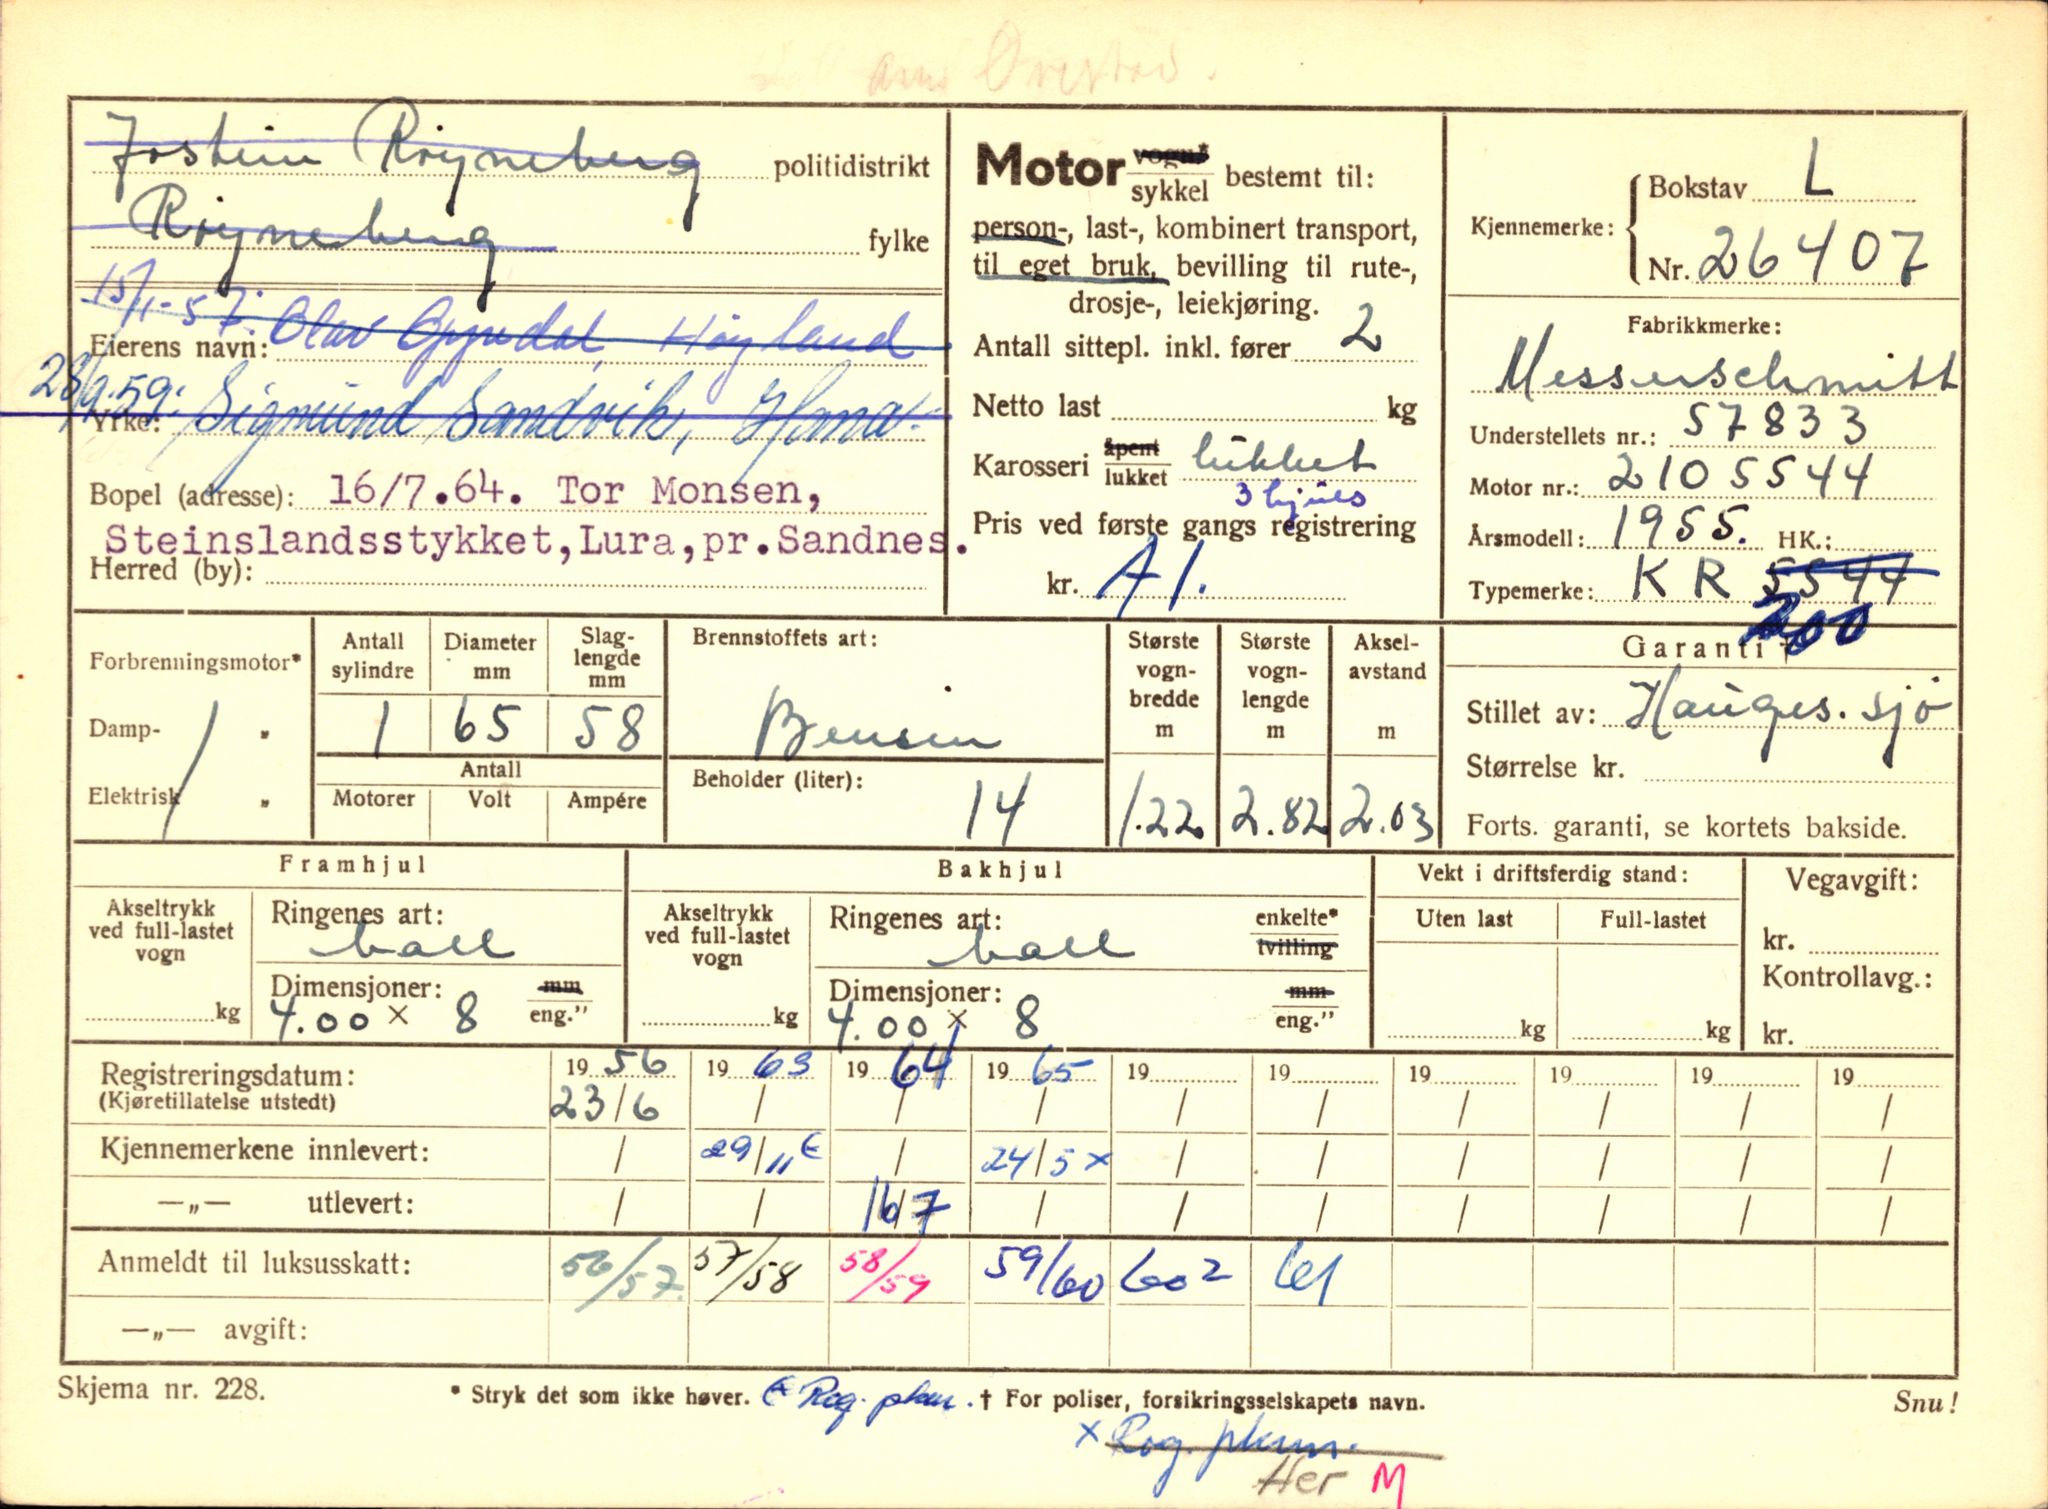 Jostein Røyneberg politidistrikt
Røyneberg fylke
15/1-57: Olav Gyndal, Høyland
Eierens navn:
23/9.59: Sigmund Sandvik, Hana.
Yrke:
Bopel (adresse): 16/7.64. Tor Monsen,
Steinslandsstykket, Lura, pr. Sandnes.
Herred (by):
Motor vogn* sykkel bestemt til:
person-, last-, kombinert transport,
til eget bruk, bevilling til rute-,
drosje-, leiekjøring.
Antall sittepl. inkl. fører 2
Netto last kg
Karosseri åpent lukket lukket
3 hjuls
Pris ved første gangs registrering
kr. A 1.
Kjennemerke: Bokstav L
Nr. 26407
Fabrikkmerke:
Messerschmitt
Understellets nr.: 57833
Motor nr.: 2105544
Årsmodell: 1955. HK.:
Typemerke: KR 5544
200
Forbrenningsmotor*
Damp- "
Elektrisk "
Antall sylindre Diameter mm Slag-lengde mm
1 65 58
Antall
Motorer Volt Ampére
Brennstoffets art:
Bensin
Beholder (liter):
14
Største vogn-bredde m Største vogn-lengde m Aksel-avstand m
1.22 2.82 2.03
Garanti †
Stillet av: Hauges. sjø
Størrelse kr.
Forts. garanti, se kortets bakside.
Framhjul
Akseltrykk ved full-lastet vogn
kg
Ringenes art:
ball
Dimensjoner: mm eng."
4.00 × 8
Bakhjul
Akseltrykk ved full-lastet vogn
kg
Ringenes art: enkelte* tvilling
ball
Dimensjoner: mm eng."
4.00 × 8
Vekt i driftsferdig stand:
Uten last Full-lastet
kg kg
Vegavgift:
kr.
Kontrollavg.:
kr.
Registreringsdatum: 19 56 19 63 19 64 19 65 19 19 19 19 19 19
(Kjøretillatelse utstedt) 23/6 / / / / / / / / /
Kjennemerkene innlevert: / 29/11 € / 24/5 × / / / / / /
—„— utlevert: / / 16/7 / / / / / / /
Anmeldt til luksusskatt: 56/57. 57/58 58/59 59/60 60 2 61
—„— avgift:
Skjema nr. 228. * Stryk det som ikke høver. € Rog. pkm. † For poliser, forsikringsselskapets navn. Snu!
× Rog. pkm.
Her M